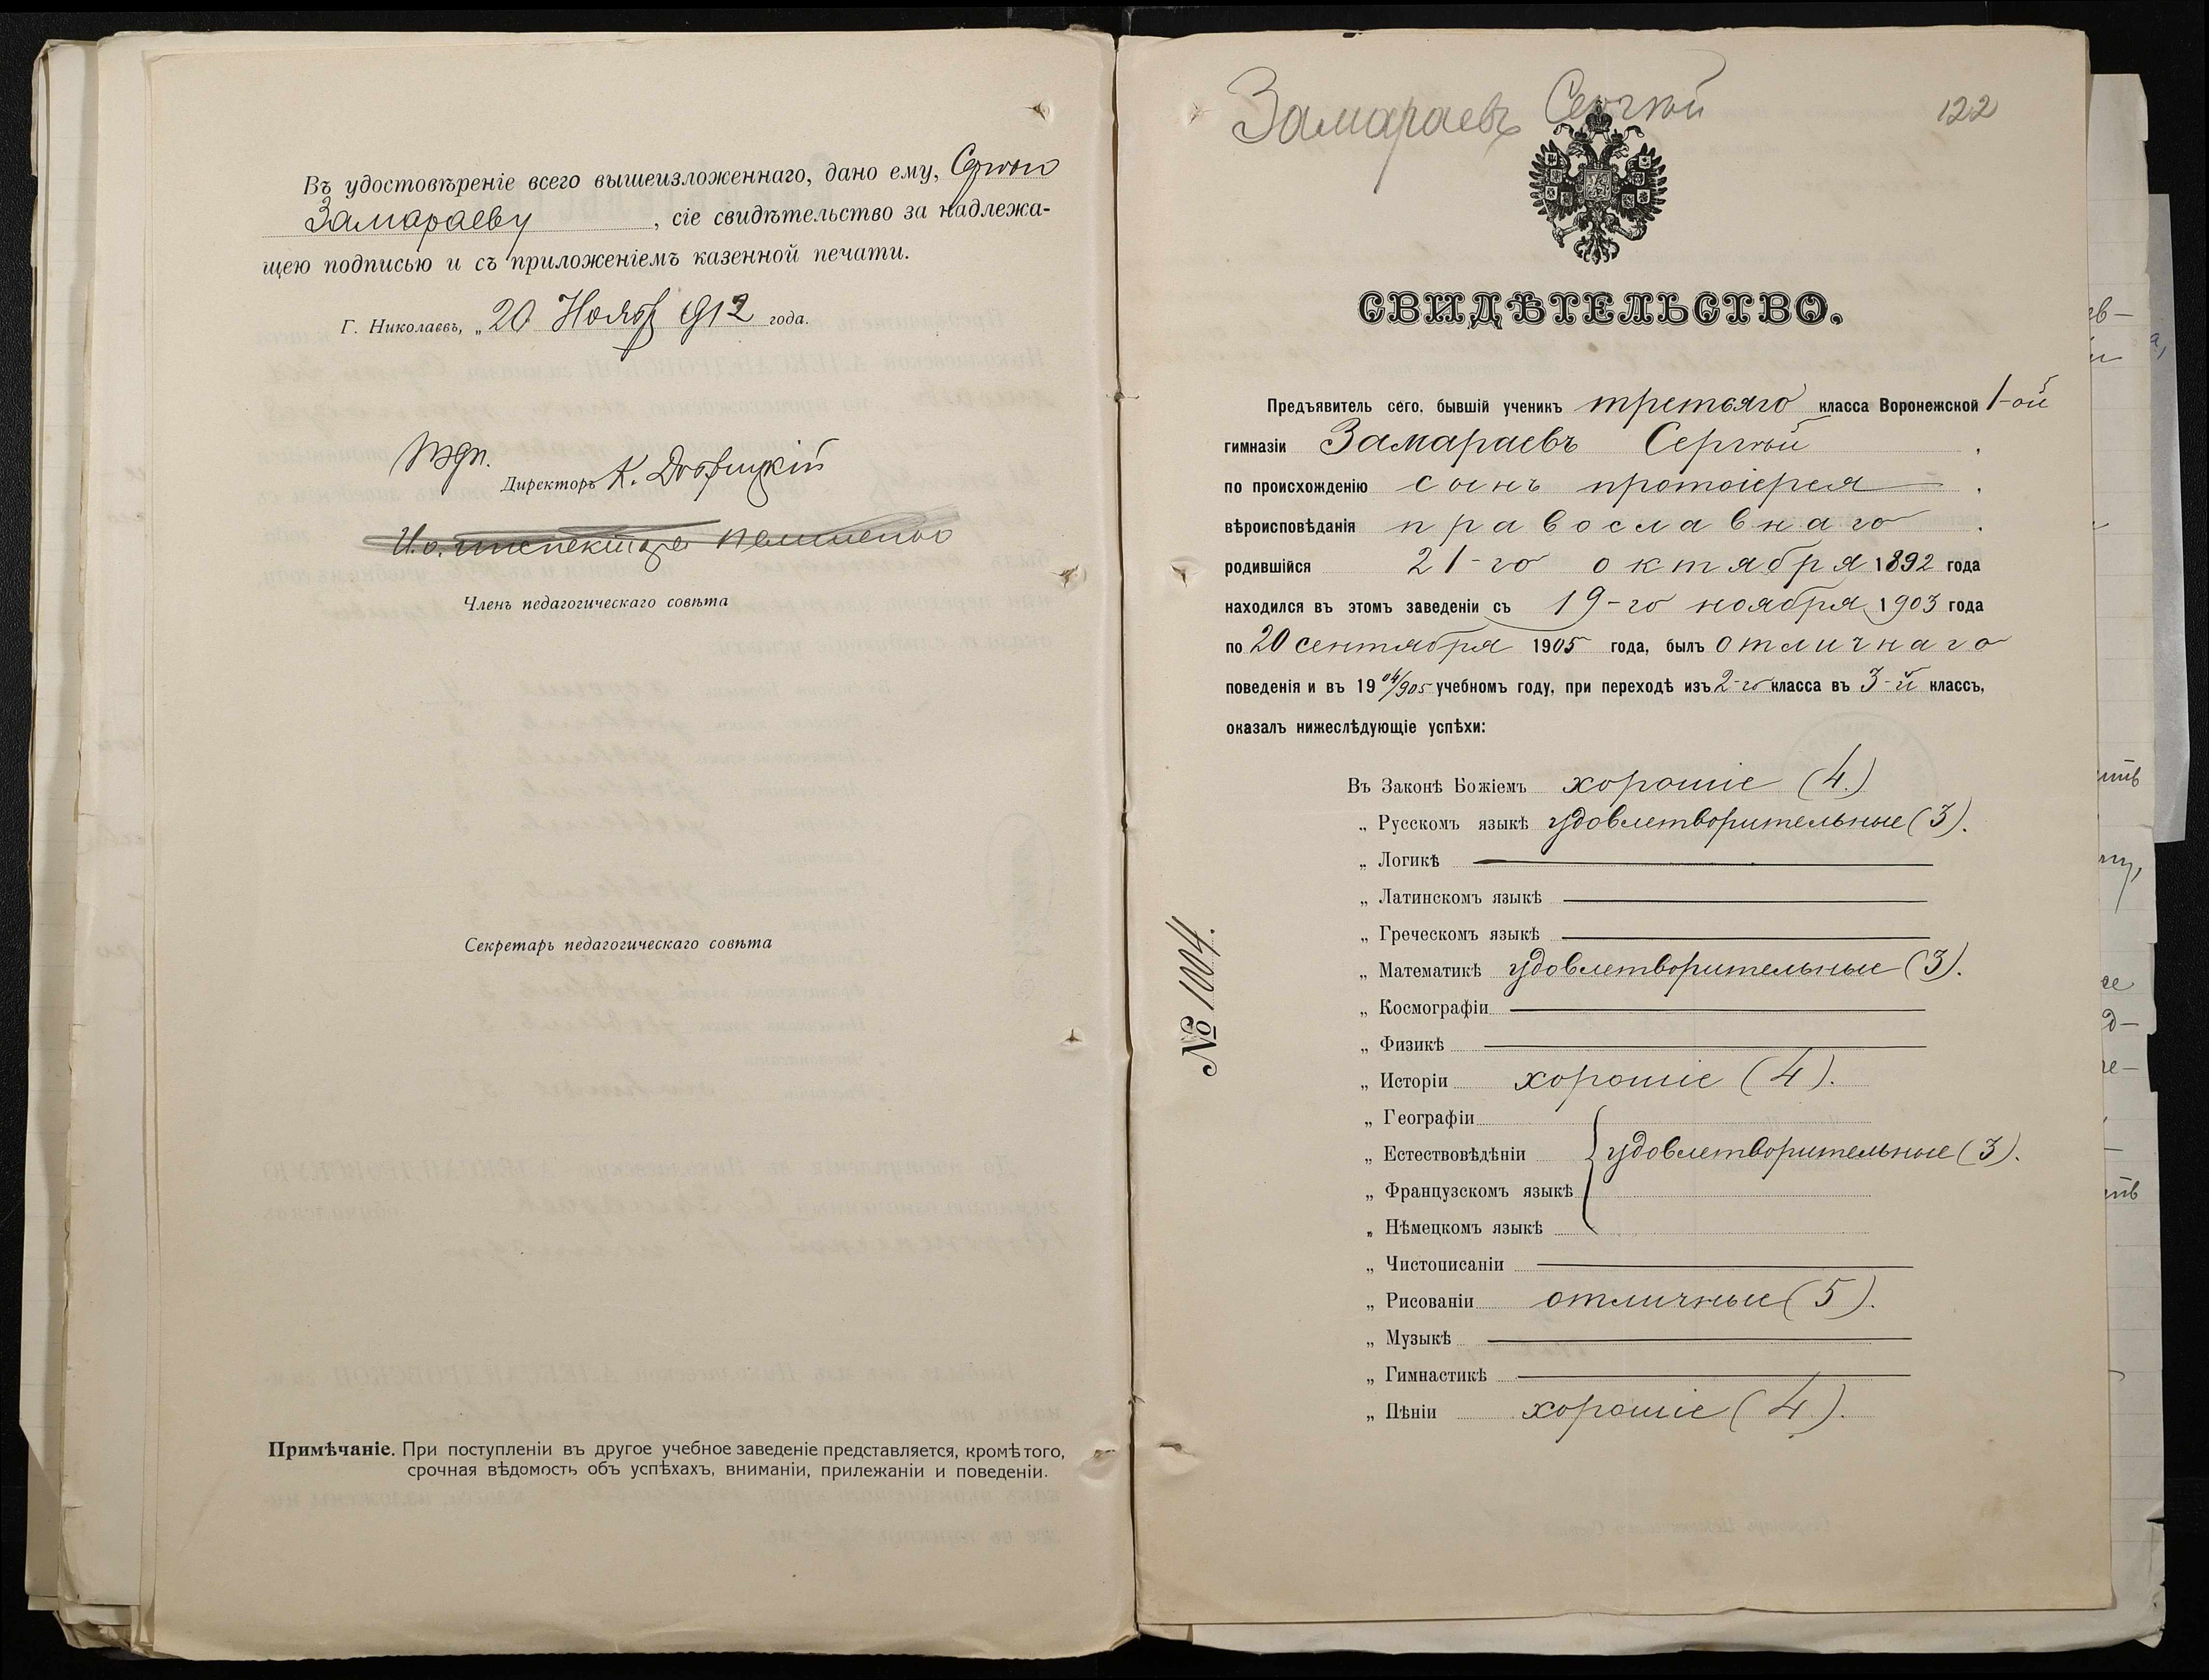 Въ удостовѣреніе всего вышеизложеннаго, дано ему, Сергѣю
Замараеву, сіе свидѣтельство за надлежа-
щею подписью и съ приложеніемъ казенной печати.
Г. Николаевъ, „20 Ноябр 1912 года.
Директоръ К.
И. о. инспектора
Членъ педагогическаго совѣта
Секретарь педагогическаго совѣта
Примѣчаніе. При поступленіи въ другое учебное заведеніе представляется, кромѣ того,
срочная вѣдомость объ успѣхахъ, вниманіи, прилежаніи и поведеніи.
Замараевъ Сергѣй
122
СВИДѢТЕЛЬСТВО.
Предъявитель сего, бывшій ученикъ третьяго класса Воронежской 1-ой
гимназіи Замараевъ Сергѣй,
по происхожденію сынъ протоіерея,
вѣроисповѣданія православнаго.
родившійся 21-го октября 1892 года
находился въ этомъ заведеніи съ 19-го ноября 1903 года
по 20 сентября 1905 года, былъ отличнаго
поведенія и въ 1904/905 учебномъ году, при переходѣ изъ 2-го класса въ 3-й классъ,
оказалъ нижеслѣдующіе успѣхи:
Въ Законѣ Божіемъ хорошіе (4.)
„ Русскомъ языкѣ удовлетворительные (3).
„ Логикѣ
„ Латинскомъ языкѣ
„ Греческомъ языкѣ
„ Математикѣ удовлетворительные (3).
„ Космографіи
„ Физикѣ
„ Исторіи хорошіе (4).
„ Географіи
„ Естествовѣдѣніи удовлетворительные (3).
„ Французскомъ языкѣ
„ Нѣмецкомъ языкѣ
„ Чистописаніи
„ Рисованіи отличные (5).
„ Музыкѣ
„ Гимнастикѣ
„ Пѣніи хорошіе (4).
№ 1004.